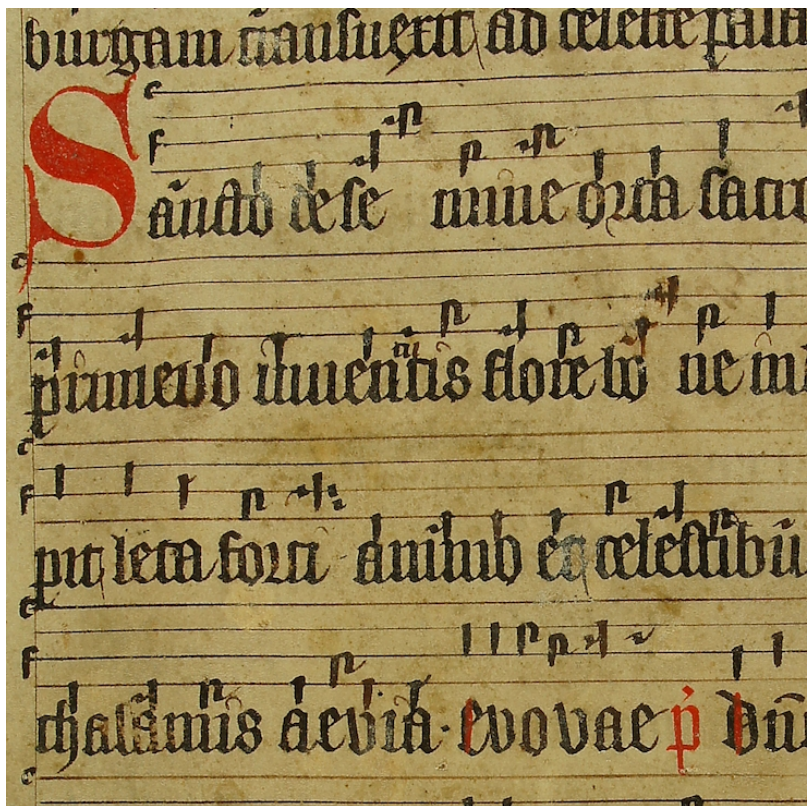 burgam transuexit ad celeste pala
Sancto de se mine orta sacra
primevo iuuentutis flore bo ne in
pit leta forti animo et celestibu
thalamis aevia · evovae p̓ dn̄